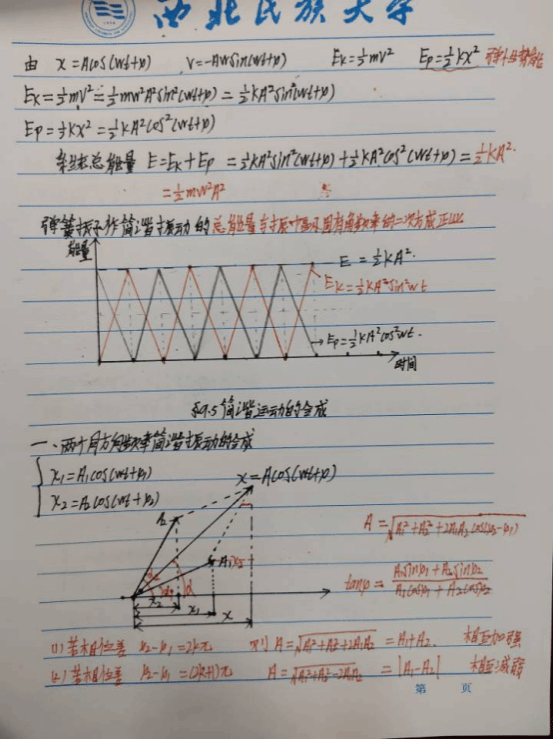 西北民族大学
由 x=Acos(wt+φ) v=-Awsin(wt+φ) Ek=½mv² Ep=½kx²
Ek=½mv²=½mw²A²sin²(wt+φ)=½kA²sin²(wt+φ)
Ep=½kx²=½kA²cos²(wt+φ)
系统总能量 E=Ek+Ep=½kA²sin²(wt+φ)+½kA²cos²(wt+φ)=½kA².
=½mw²A²
弹簧振子作简谐振动的总能量与振幅及固有角频率的二次方成正比
能量
E=½kA².
Ek=½kA²sin²wt
Ep=½kA²cos²wt.
时间
§9.5 简谐运动的合成
一、两个同方向同频率简谐振动的合成
x₁=A₁cos(wt+φ₁)
x₂=A₂cos(wt+φ₂)
x=Acos(wt+φ)
A₂
A₁
A=√A₁²+A₂²+2A₁A₂cos(φ₂-φ₁)
tanφ=A₁sinφ₁+A₂sinφ₂/A₁cosφ₁+A₂cosφ₂
x₂
x₁
x
(1) 若相位差 φ₂-φ₁=2kπ 则 A=√A₁²+A₂²+2A₁A₂=A₁+A₂. 相互加强
(2) 若相位差 φ₂-φ₁=(2k+1)π A=√A₁²+A₂²-2A₁A₂=|A₁-A₂| 相互减弱
第 页